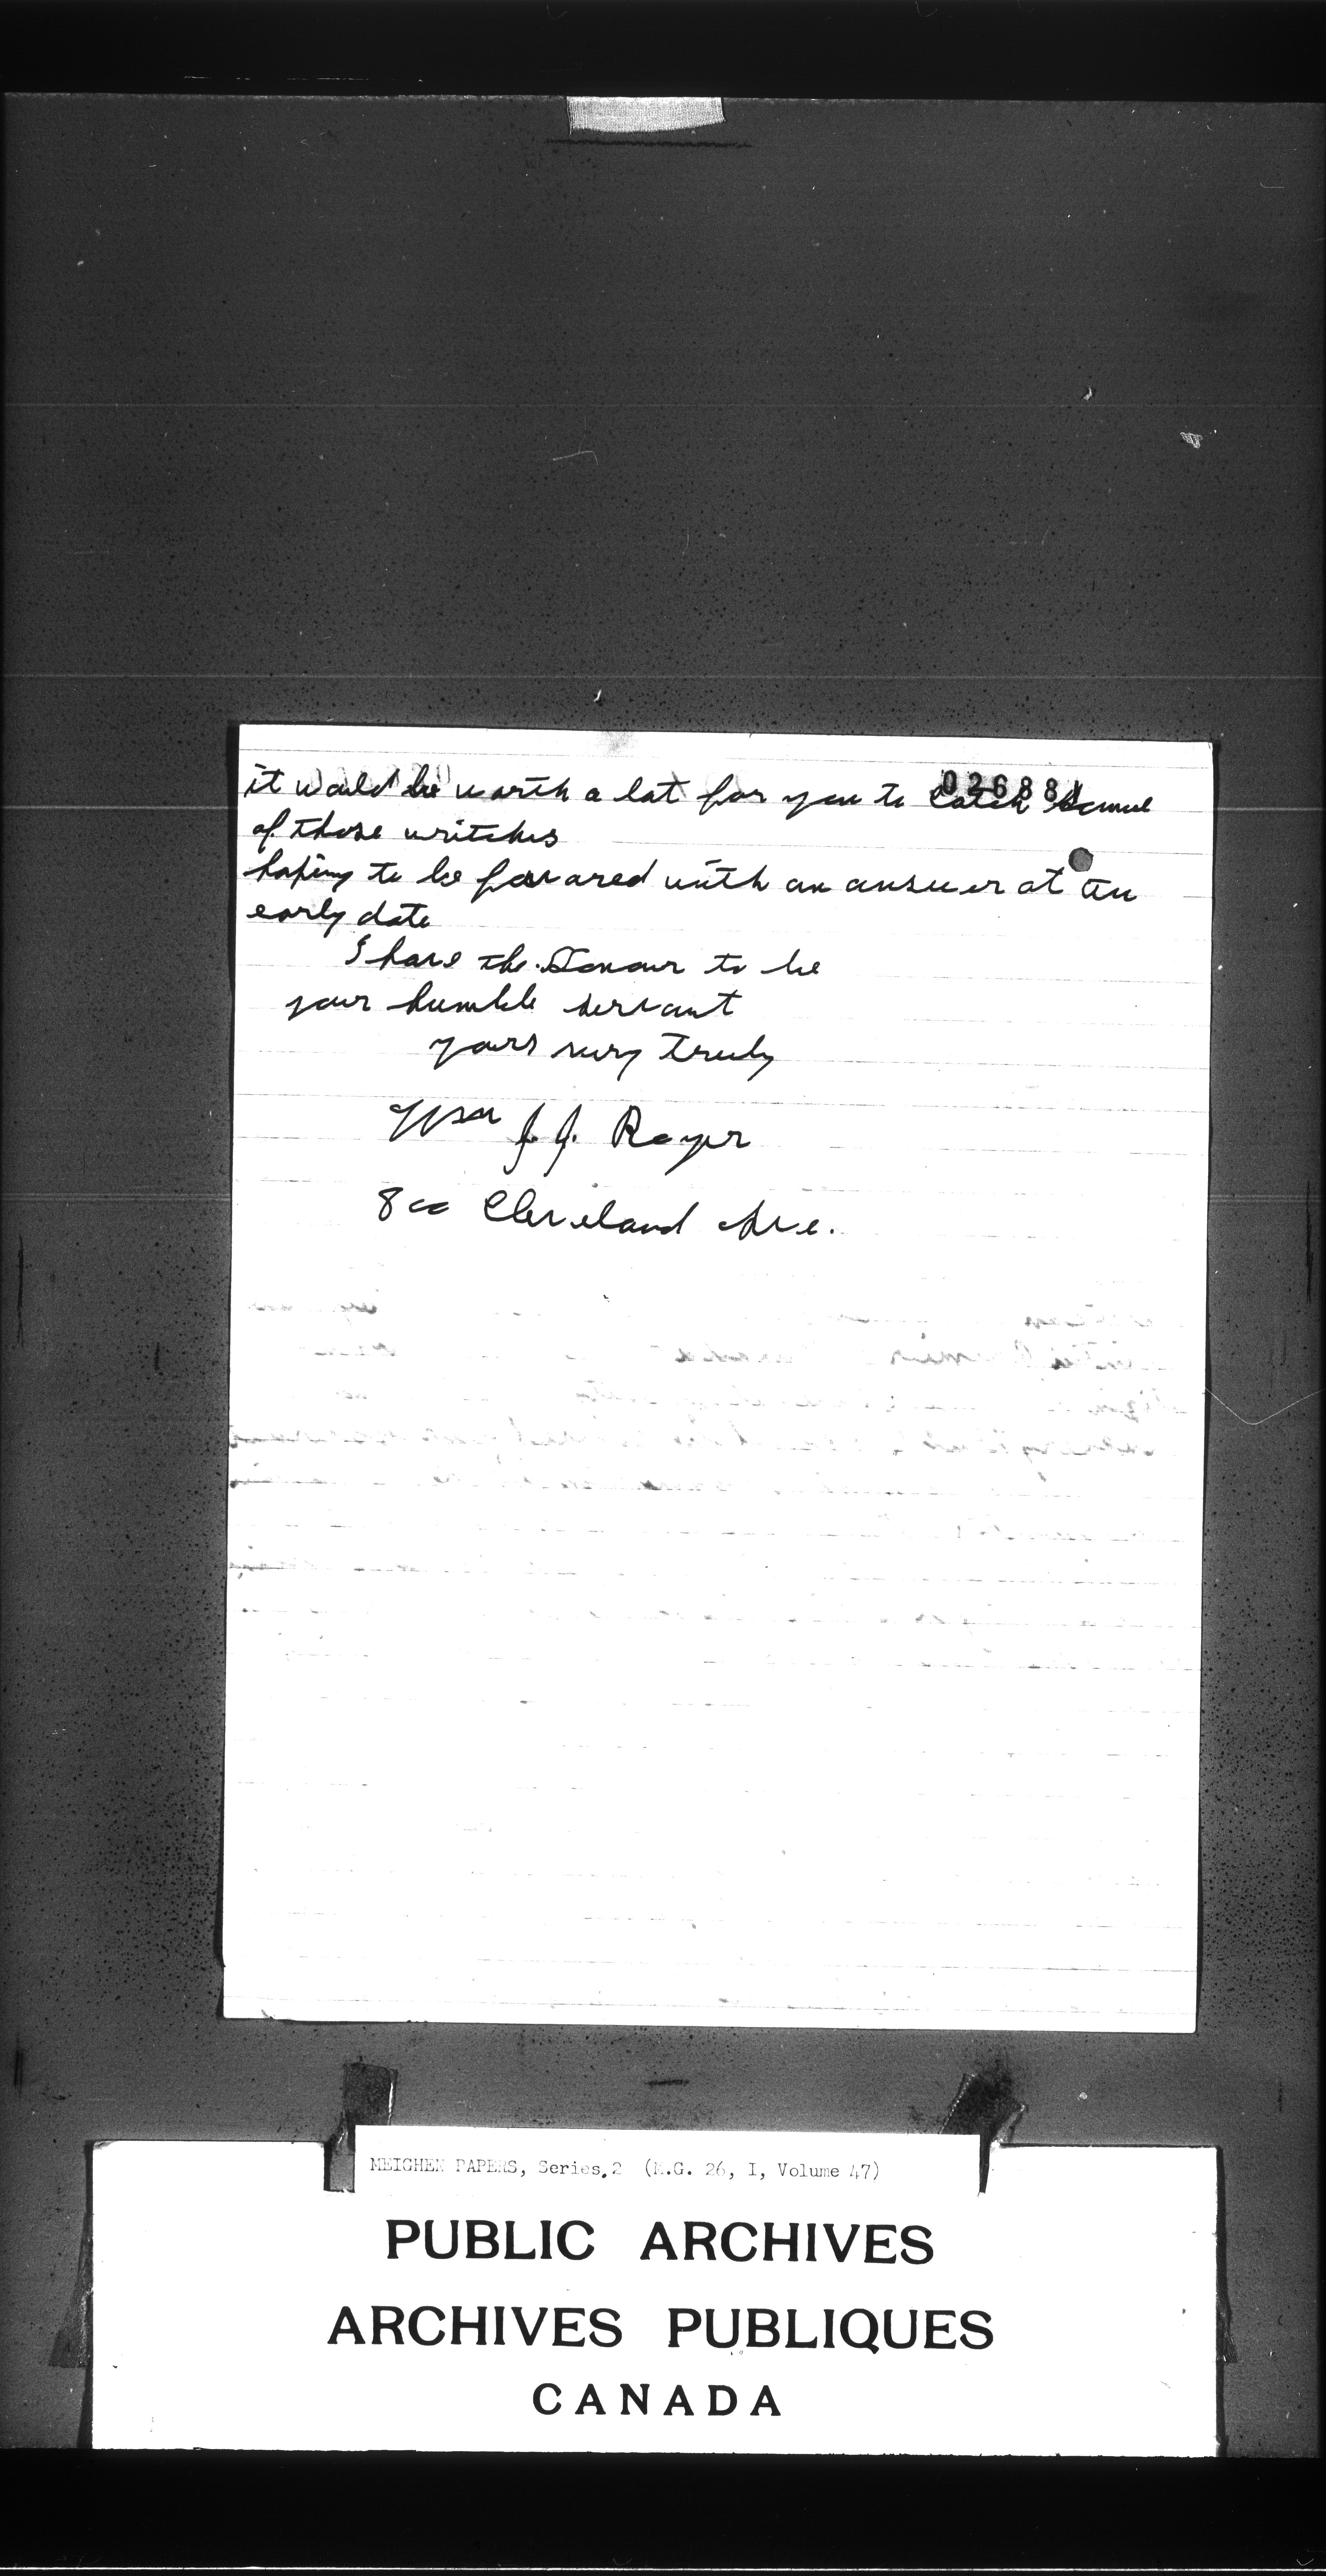 026881
it would be worth a lot for you to catch some
of those writches
hoping to be favared with an answer at an
early date
I have the honour to be
your humble servant
yours very truly
Wm J. J. Royer
800 Cleveland Ave.
MEIGHEN PAPERS, Series 2 (M.G. 26, I, Volume 47)
PUBLIC ARCHIVES
ARCHIVES PUBLIQUES
CANADA